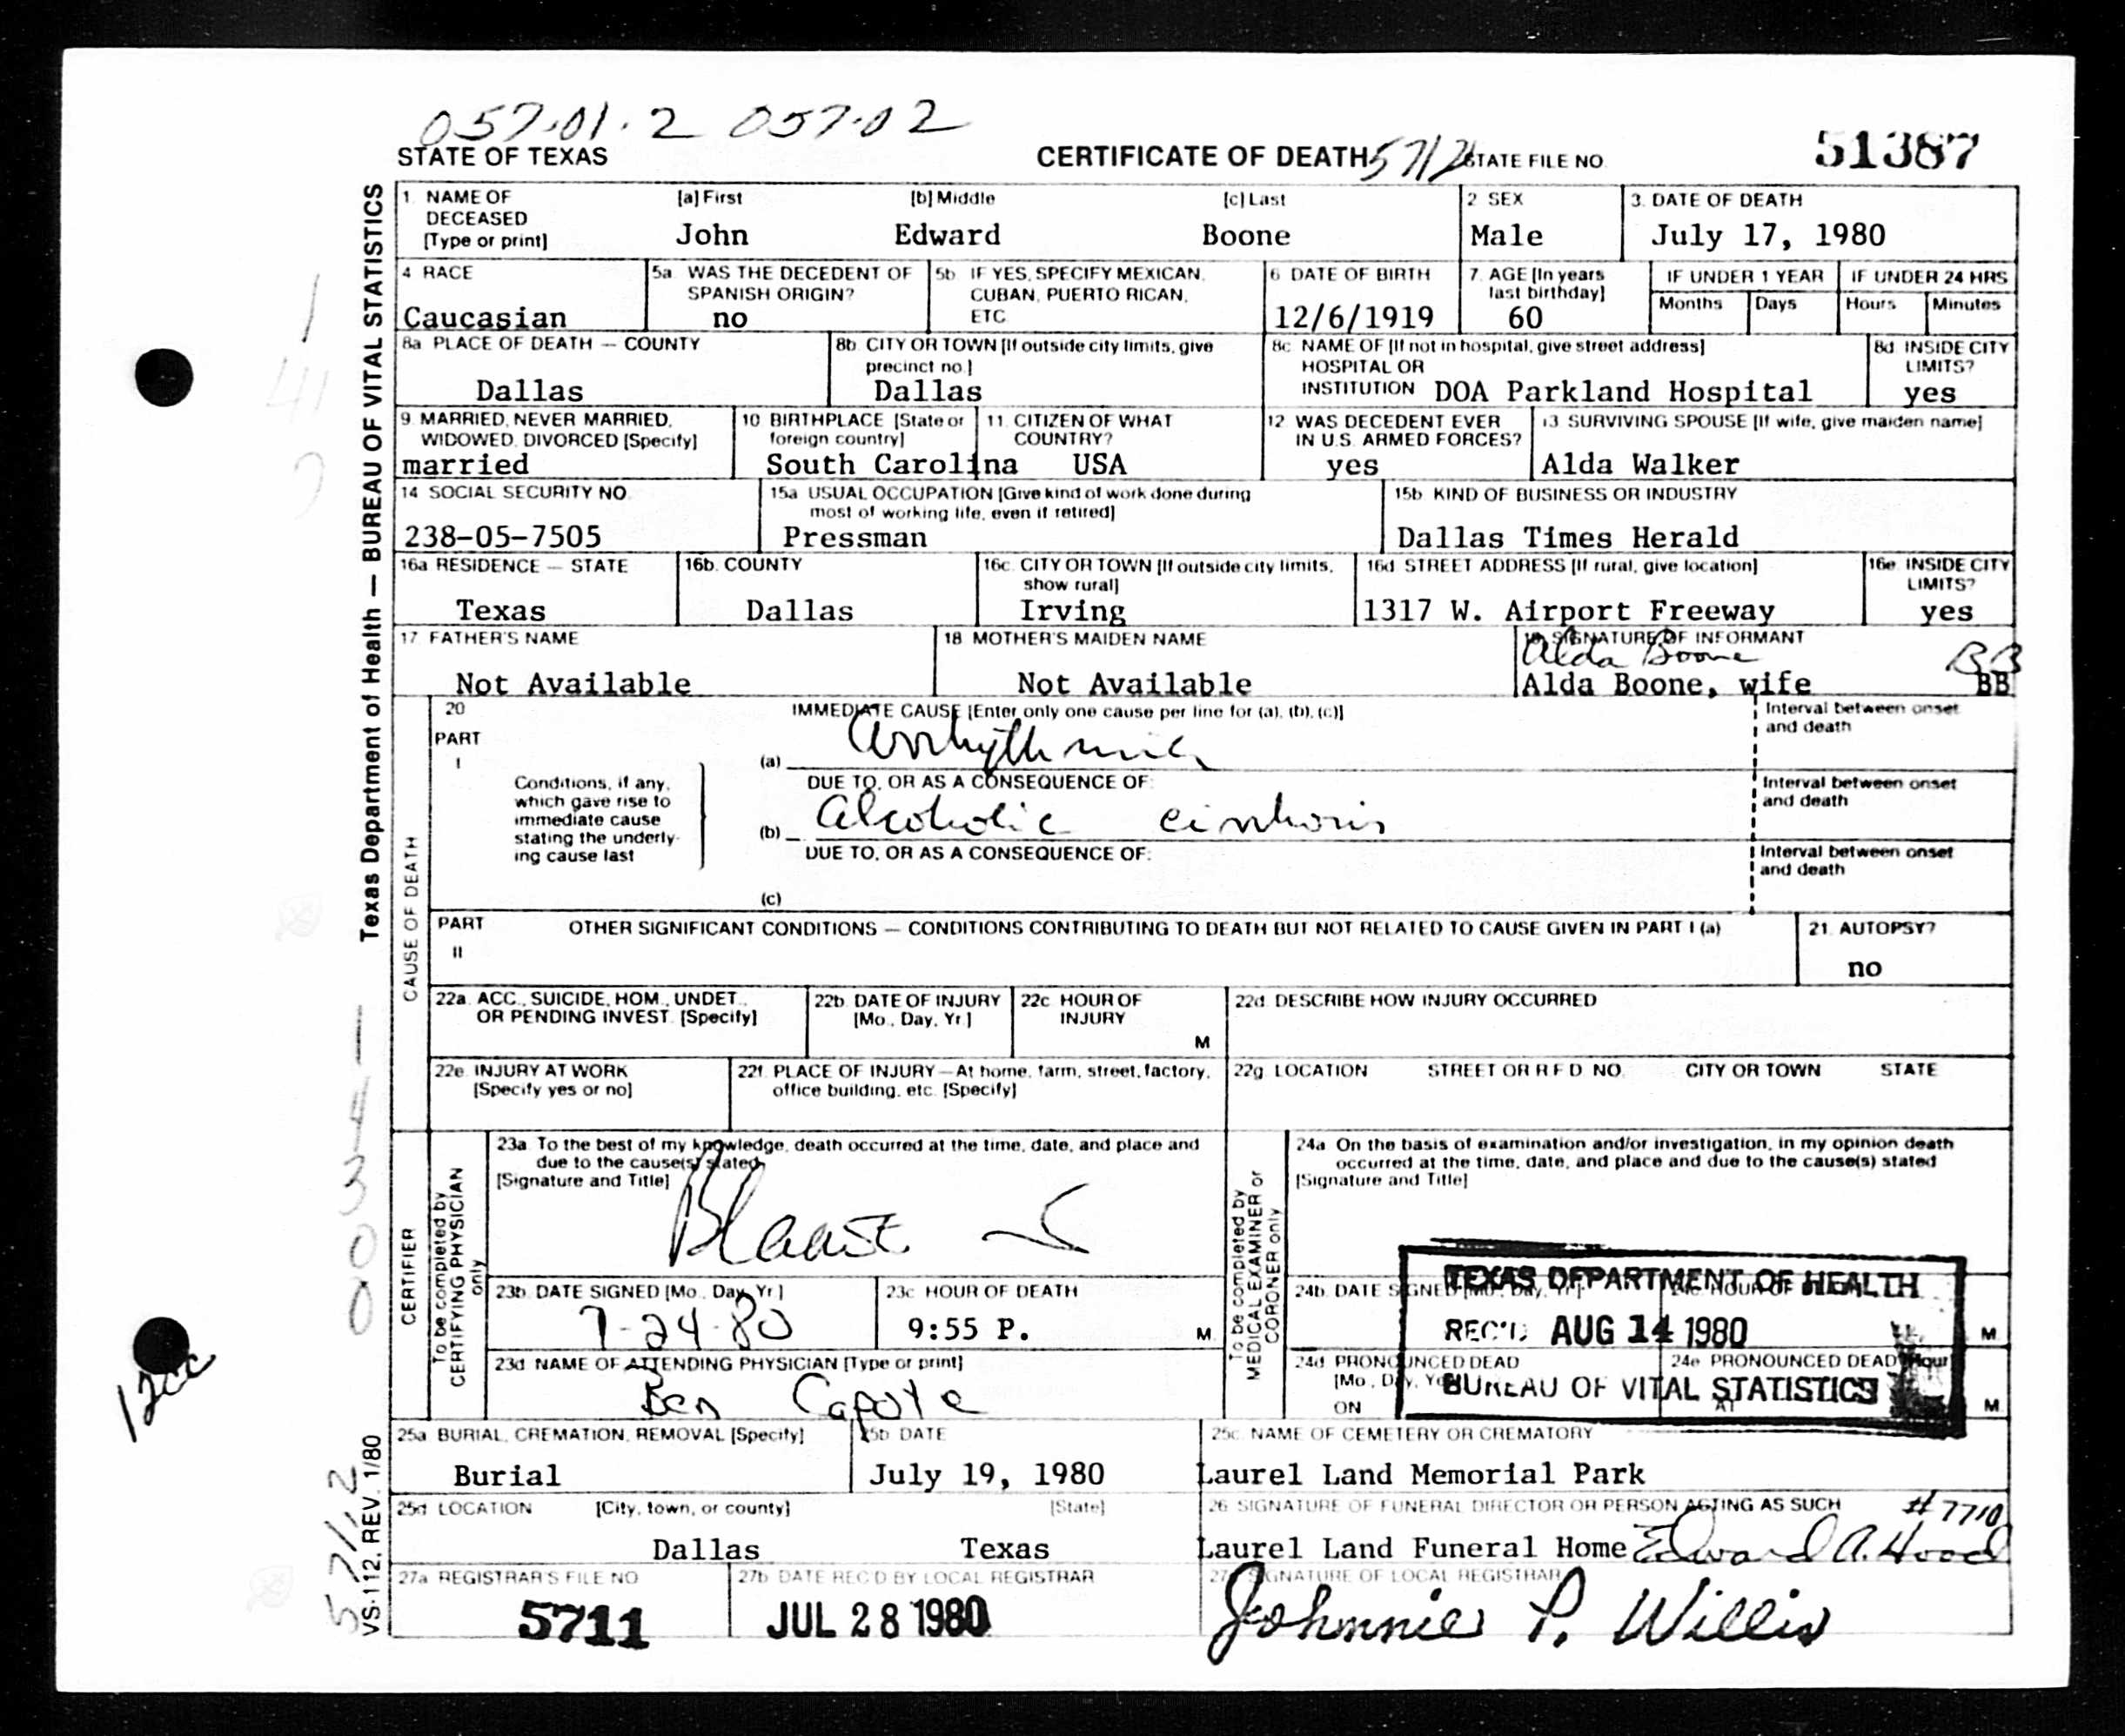 057.01.2 057.02
STATE OF TEXAS CERTIFICATE OF DEATH 5712 STATE FILE NO. 51387
1. NAME OF DECEASED [Type or print] [a] First [b] Middle [c] Last 2 SEX 3. DATE OF DEATH
John Edward Boone Male July 17, 1980
4 RACE 5a. WAS THE DECEDENT OF SPANISH ORIGIN? 5b. IF YES, SPECIFY MEXICAN, CUBAN, PUERTO RICAN, ETC 6 DATE OF BIRTH 7. AGE [In years last birthday] IF UNDER 1 YEAR IF UNDER 24 HRS
Months Days Hours Minutes
Caucasian no 12/6/1919 60
8a. PLACE OF DEATH — COUNTY 8b. CITY OR TOWN [If outside city limits, give precinct no.] 8c. NAME OF [If not in hospital, give street address] HOSPITAL OR INSTITUTION 8d. INSIDE CITY LIMITS?
Dallas Dallas DOA Parkland Hospital yes
9. MARRIED, NEVER MARRIED, WIDOWED, DIVORCED [Specify] 10. BIRTHPLACE [State or foreign country] 11. CITIZEN OF WHAT COUNTRY? 12 WAS DECEDENT EVER IN U.S. ARMED FORCES? 13 SURVIVING SPOUSE [If wife, give maiden name]
married South Carolina USA yes Alda Walker
14 SOCIAL SECURITY NO. 15a. USUAL OCCUPATION [Give kind of work done during most of working life, even if retired] 15b. KIND OF BUSINESS OR INDUSTRY
238-05-7505 Pressman Dallas Times Herald
16a RESIDENCE — STATE 16b. COUNTY 16c. CITY OR TOWN [If outside city limits, show rural] 16d. STREET ADDRESS [If rural, give location] 16e. INSIDE CITY LIMITS?
Texas Dallas Irving 1317 W. Airport Freeway yes
17 FATHER'S NAME 18 MOTHER'S MAIDEN NAME 19. SIGNATURE OF INFORMANT
Alda Boone BB
Not Available Not Available Alda Boone, wife BB
CAUSE OF DEATH
20 PART I IMMEDIATE CAUSE [Enter only one cause per line for (a), (b), (c)] Interval between onset and death
(a) Arrhythmia
Conditions, if any, which gave rise to immediate cause stating the underlying cause last
DUE TO, OR AS A CONSEQUENCE OF: Interval between onset and death
(b) Alcoholic cirrhosis
DUE TO, OR AS A CONSEQUENCE OF: Interval between onset and death
(c)
PART II OTHER SIGNIFICANT CONDITIONS — CONDITIONS CONTRIBUTING TO DEATH BUT NOT RELATED TO CAUSE GIVEN IN PART I (a) 21. AUTOPSY?
no
22a. ACC., SUICIDE, HOM., UNDET., OR PENDING INVEST. [Specify] 22b. DATE OF INJURY [Mo., Day, Yr.] 22c. HOUR OF INJURY M 22d. DESCRIBE HOW INJURY OCCURRED
22e. INJURY AT WORK [Specify yes or no] 22f. PLACE OF INJURY—At home, farm, street, factory, office building, etc. [Specify] 22g. LOCATION STREET OR R.F.D. NO. CITY OR TOWN STATE
CERTIFIER
To be completed by CERTIFYING PHYSICIAN only
23a. To the best of my knowledge, death occurred at the time, date, and place and due to the cause(s) stated [Signature and Title]
23b. DATE SIGNED [Mo., Day, Yr.] 23c. HOUR OF DEATH
7-24-80 9:55 P. M
23d. NAME OF ATTENDING PHYSICIAN [Type or print]
Ben Capote
To be completed by MEDICAL EXAMINER or CORONER only
24a. On the basis of examination and/or investigation, in my opinion death occurred at the time, date, and place and due to the cause(s) stated [Signature and Title]
24b. DATE SIGNED [Mo., Day, Yr.] 24c. HOUR OF M
24d. PRONOUNCED DEAD [Mo., Day, Yr.] ON 24e. PRONOUNCED DEAD [Hour] AT M
TEXAS DEPARTMENT OF HEALTH
REC'D AUG 14 1980
BUREAU OF VITAL STATISTICS
25a. BURIAL, CREMATION, REMOVAL [Specify] 25b. DATE 25c. NAME OF CEMETERY OR CREMATORY
Burial July 19, 1980 Laurel Land Memorial Park
25d. LOCATION [City, town, or county] [State] 26. SIGNATURE OF FUNERAL DIRECTOR OR PERSON ACTING AS SUCH #7710
Dallas Texas Laurel Land Funeral Home Edward A. Hood
27a. REGISTRAR'S FILE NO. 27b. DATE REC'D BY LOCAL REGISTRAR 27c. SIGNATURE OF LOCAL REGISTRAR
5711 JUL 28 1980 Johnnie P. Willis
Texas Department of Health — BUREAU OF VITAL STATISTICS
VS-112, REV. 1/80
5712